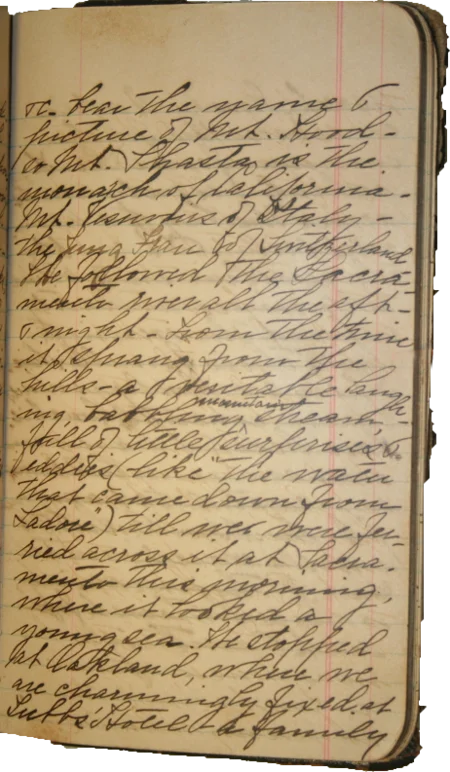 etc. bear the name &
picture of Mt. Hood -
as Mt. Shasta is the
monarch of California -
Mt. Vesuvius of Italy -
the Jung Frau of Switzerland
We followed the Sacra-
mento river all the aft-
& night - from the time
it sprang from the
hills - a veritable laugh-
ing, babbling mountain stream,
full of little surprises &
eddies (like "the water
that came down from
Ladore") till we were fer-
ried across it at Sacra-
mento this morning,
where it looked a
young sea. We stopped
at Oakland, where we
are charmingly fixed at
Tubbs' Hotel - a family